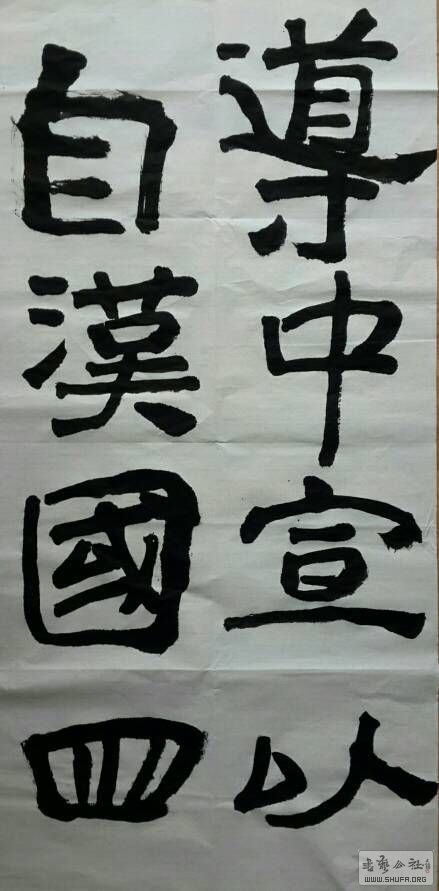 導中宣以
自漢國四
書藝公社
WWW.SHUFA.ORG